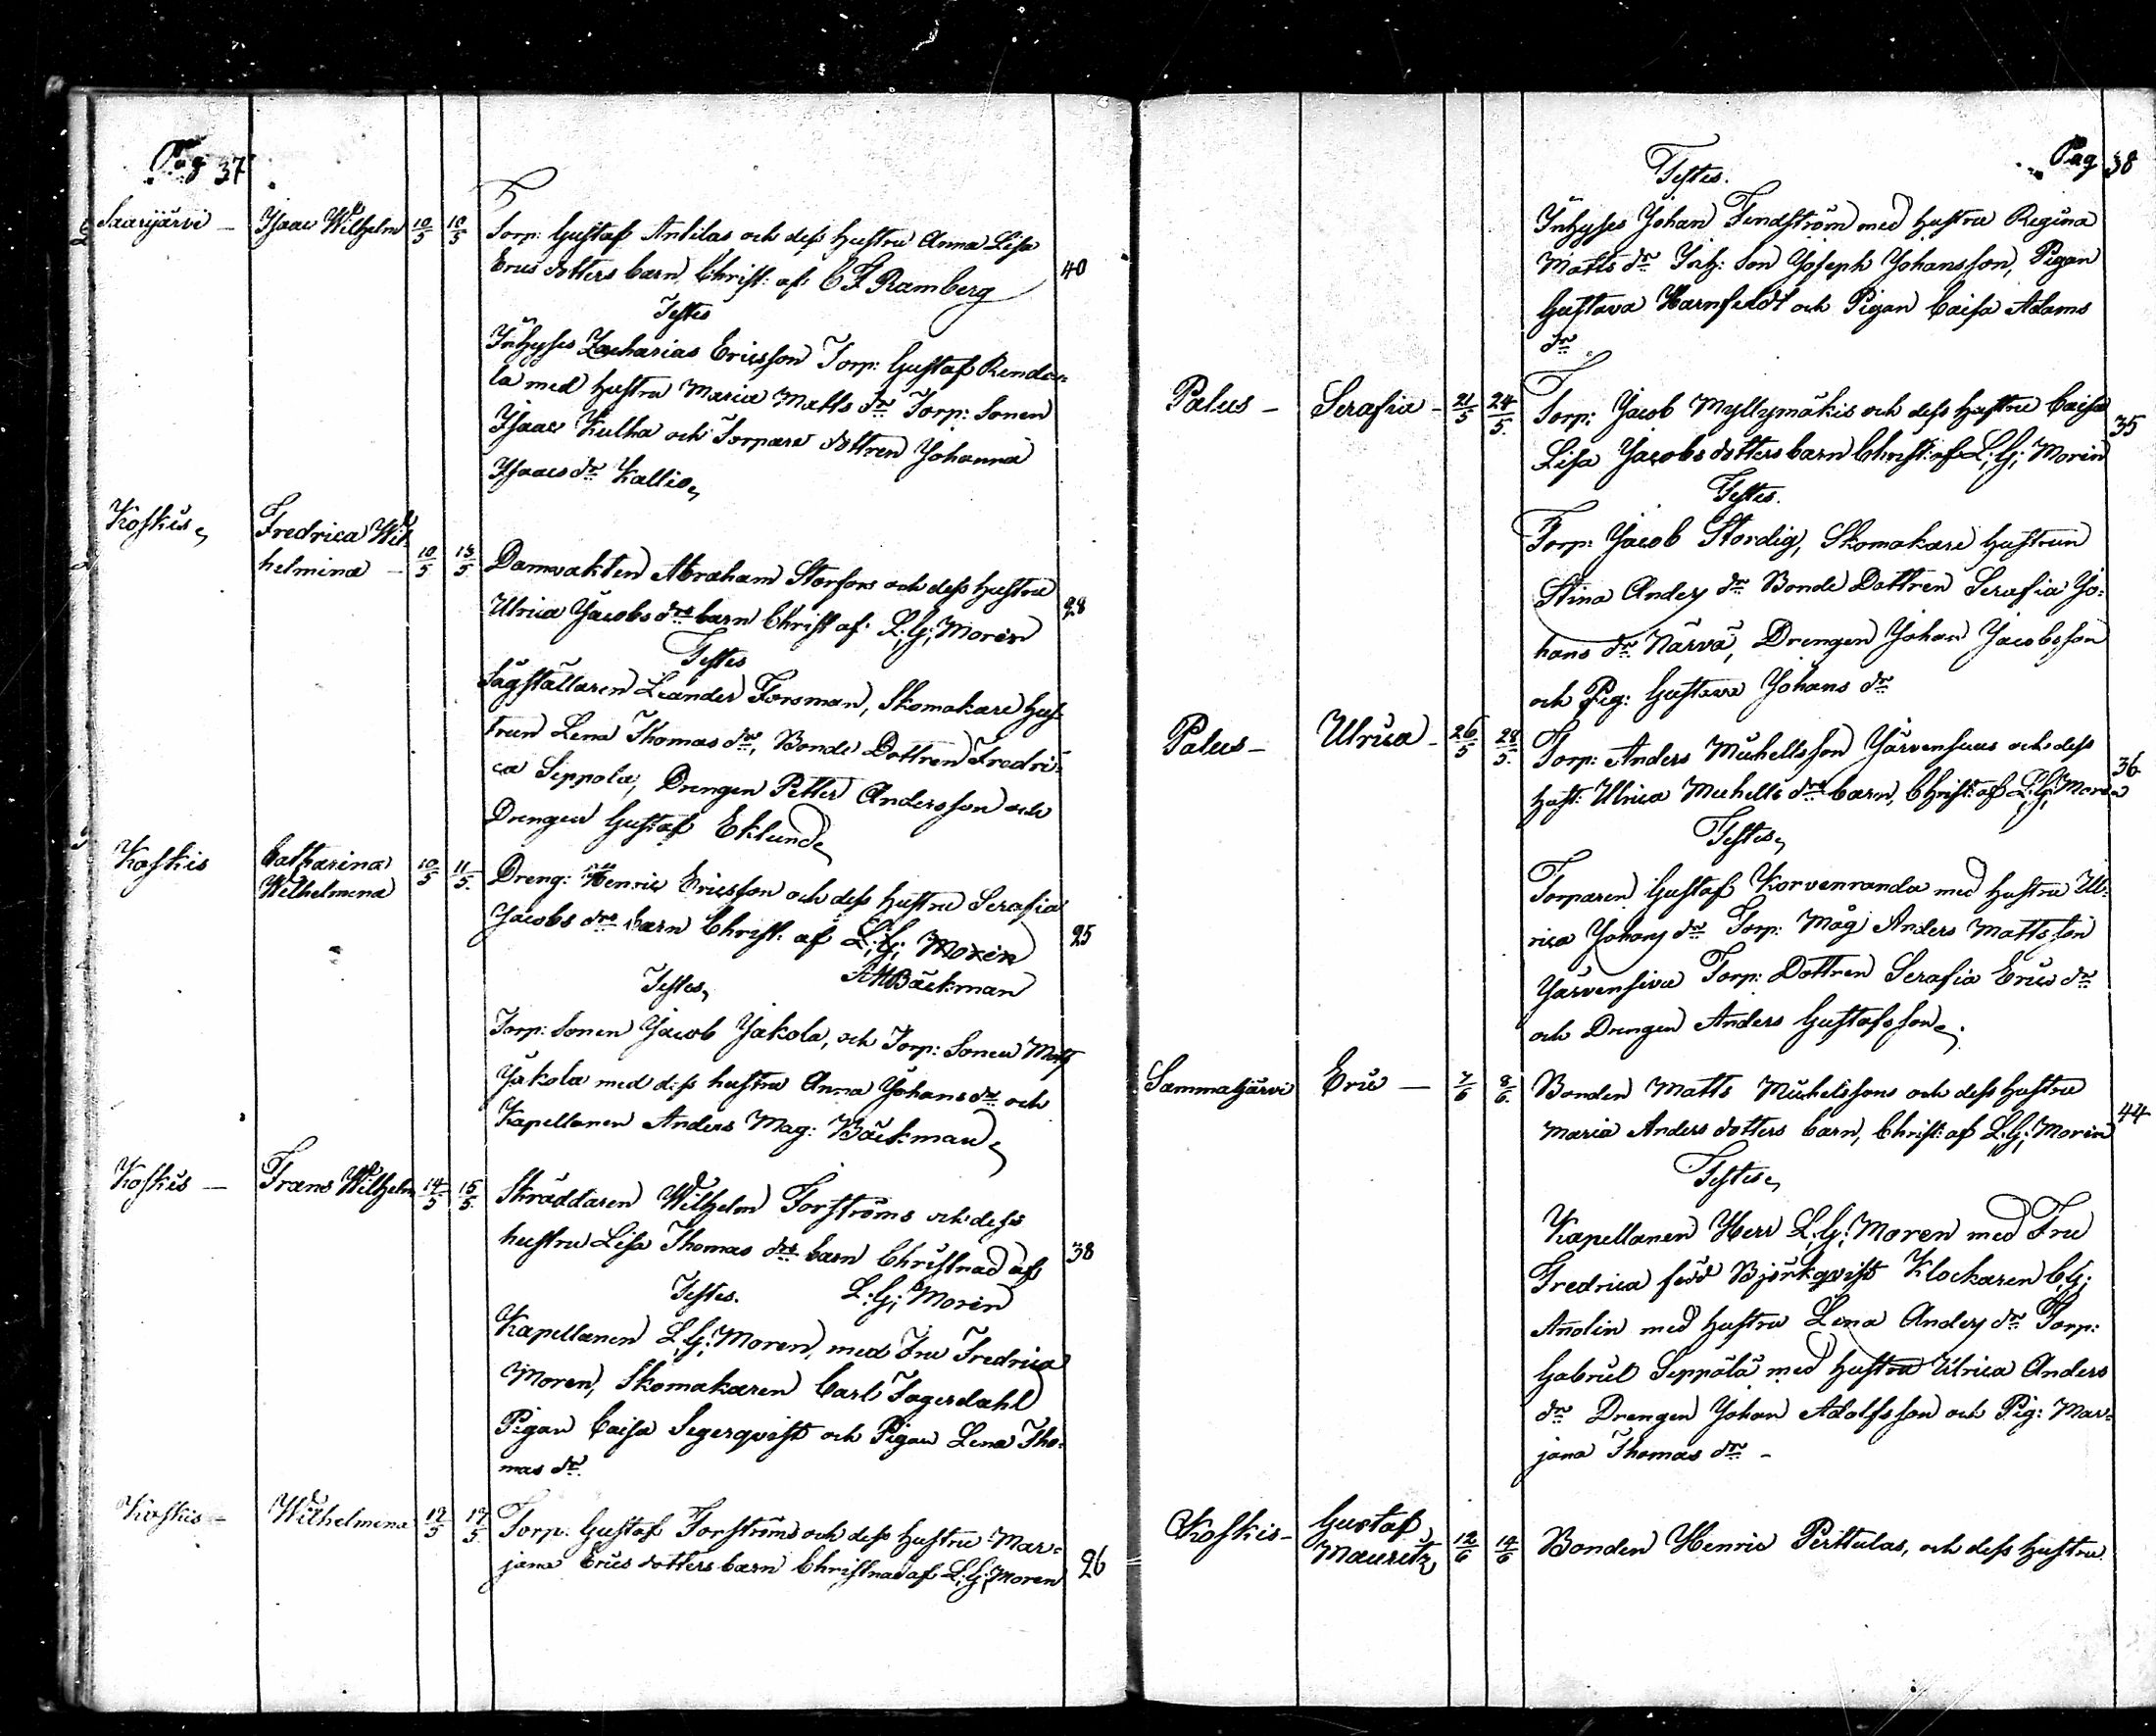 Pag 37
Saarijärvi - Isaac Wilhelm 10/5 10/5 Torp: Gustaf Antilas och dess hustru Anna Lisa
Erics dotters barn, Christ: af C F Ramberg 40
Testes
Inhyses Zacharias Ericsson Torp: Gustaf Renda-
la med hustru Maria Matts dr Torp: Sonen
Isaac Kulha och Torpare dottren Johanna
Isaacs dr Kallio,
Koskis, Fredrica Wil
helmina - 10/5 13/5 Damvakten Abraham Storfors och dess hustru
Ulrica Jacobs drs barn Christ af L: G: Moren 28
Testes
Sågställaren Leander Forsman, Skomakare hus-
trun Lena Thomas dr, Bonde Dottren Fredri-
ca Seppola, Drengen Petter Andersson och
Drengen Gustaf Eklund,
Koskis Catharina
Wilhelmina 10/5 11/5 Dreng: Henric Ericsson och dess hustru Serafia
Jacobs drs barn Christ: af L: G: Moren 25
Bäckman
Testes,
Torp: Sonen Jacob Jakola, och Torp: Sonen Matts
Jakola med dess hustru Anna Johans dr och
Kapellanen Anders Mag: Bäckman,
Koskis - Frans Wilhelm 14/5 15/5 Skräddaren Wilhelm Forströms och dess
hustru Lisa Thomas drs barn Christnad af 38
Testes. L: G: Moren
Kapellanen L: G: Moren, med Fru Fredrica
Moren, Skomakaren Carl Fagerdahl
Pigan Caisa Segerqvist och Pigan Lena Tho-
mas dr.
Koskis - Wilhelmina 17/5 17/5 Torp: Gustaf Forströms och dess hustru Mar-
jana Erics dotters barn Christnad af L: G: Moren 26
Pag 38
Testes.
Inhyses Johan Lindström med hustru Regina
Matts dr Inh: Son Joseph Johansson, Pigan
Gustava Harnfeldt och Pigan Caisa Adams
dr
Palus - Serafia - 21/5 24/5 Torp: Jacob Myllymäkis och dess hustru Caisa
Lisa Jacobs dotters barn Christ: af L: G: Moren 35
Testes.
Torp: Jacob Stordig, Skomakare hustrun
Stina Anders dr Bonde Dottren Serafia Jo-
hans dr Närvä, Drengen Johan Jacobsson
och Pig: Gustava Johans dr
Palus - Ulrica - 26/5 28/5 Torp: Anders Michellsson Järvensuus och dess
hust: Ulrica Michells drs barn, Christ: af L: G: Moren 36
Testes,
Torparen Gustaf Korvenranda med hustru Ul-
rica Johans dr Torp: Måg Anders Mattsson
Järvensivu Torp: Dottren Serafia Erics dr
och Drengen Anders Gustafsson,.
Sammatjärvi Eric - 7/6 8/6 Bonden Matts Michelssons och dess hustru
Maria Anders dotters barn, Christ: af L: G: Moren 44
Testes,
Kapellanen Herr L: G: Moren med Fru
Fredrica född Björkqvist Klockaren C: G:
Anolin med hustru Lena Anders dr Torp:
Gabriel Seppälä med hustru Ulrica Anders
dr Drengen Johan Adolfsson och Pig: Mar-
jana Thomas dr -
Koskis - Gustaf
Mauritz 12/6 14/6 Bonden Henric Perttulas, och dess hustru